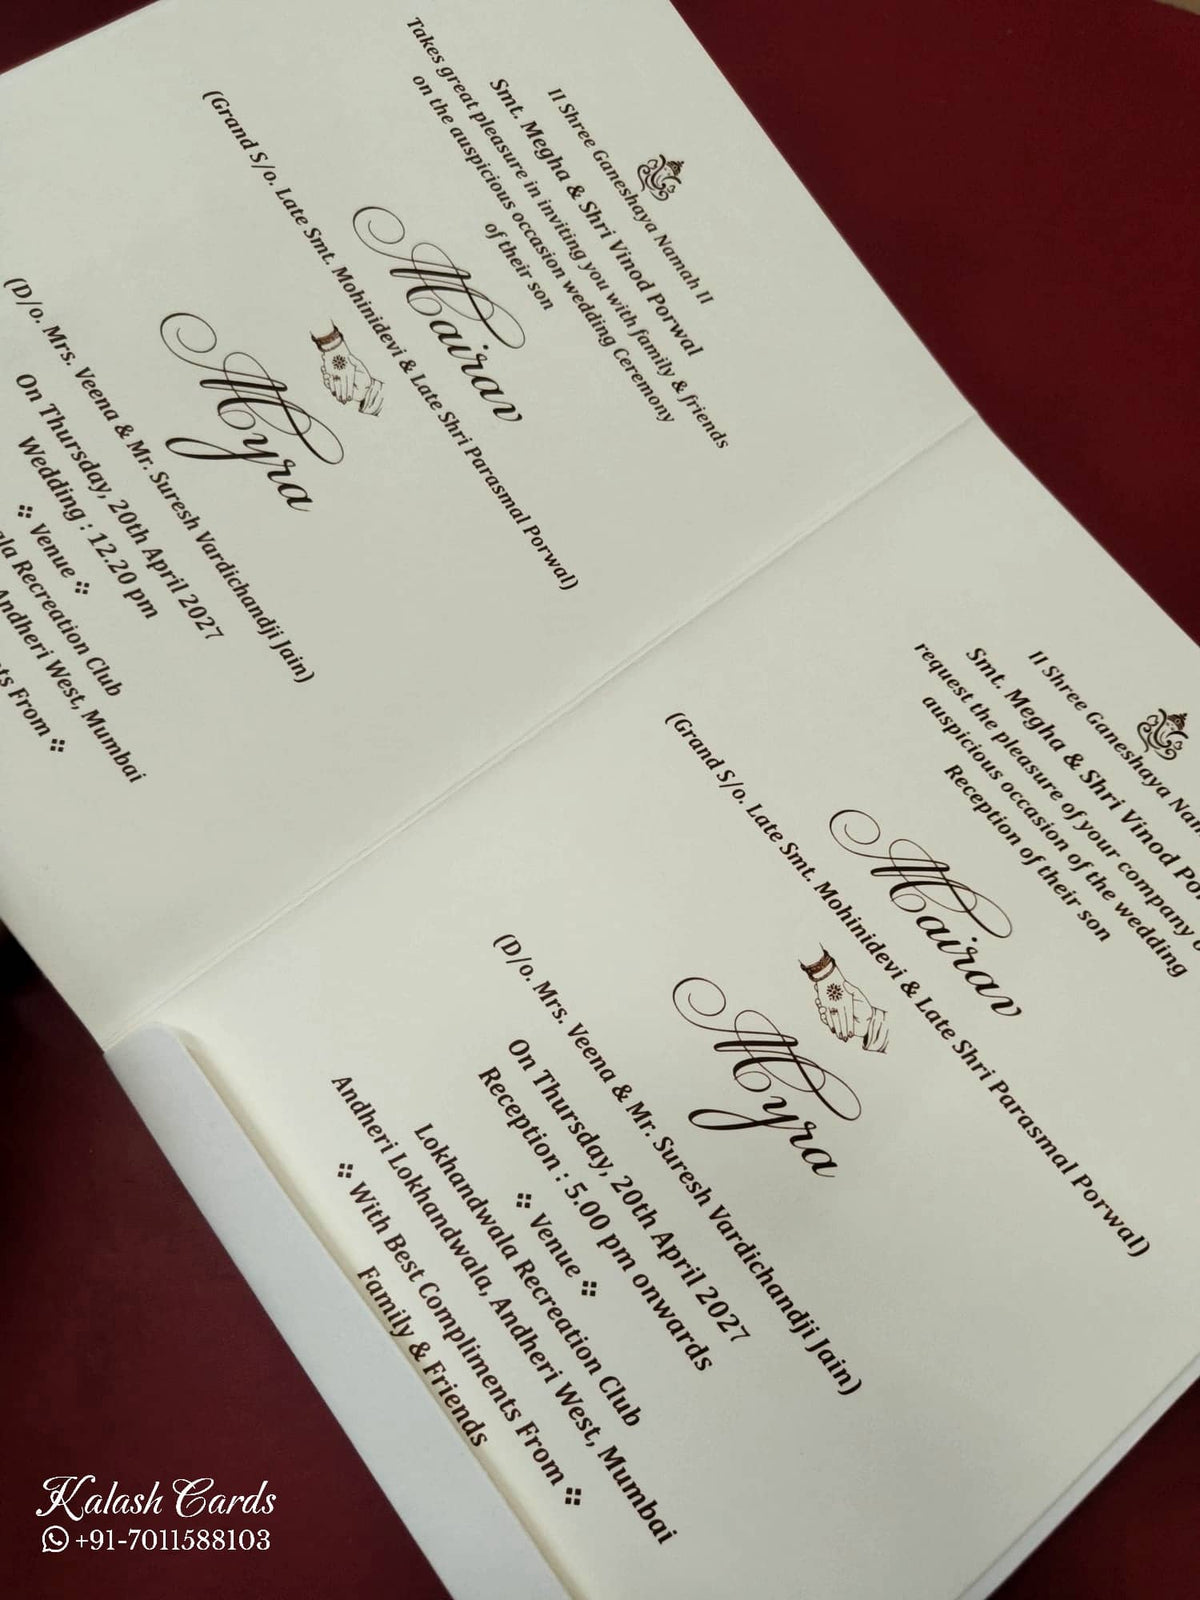 II Shree Ganeshaya Namah II
Smt. Megha & Shri Vinod Porwal
Takes great pleasure in inviting you with family & friends
on the auspicious occasion wedding Ceremony
of their son
Mairav
(Grand S/o. Late Smt. Mohinidevi & Late Shri Parasmal Porwal)
Myra
(D/o. Mrs. Veena & Mr. Suresh Vardichandji Jain)
On Thursday, 20th April 2027
Wedding : 12.20 pm
Venue
Recreation Club
Andheri West, Mumbai
From
II Shree Ganeshaya
Smt. Megha & Shri Vinod
request the pleasure of your company
auspicious occasion of the wedding
Reception of their son
Mairav
(Grand S/o. Late Smt. Mohinidevi & Late Shri Parasmal Porwal)
Myra
(D/o. Mrs. Veena & Mr. Suresh Vardichandji Jain)
On Thursday, 20th April 2027
Reception : 5.00 pm onwards
Venue
Lokhandwala Recreation Club
Andheri Lokhandwala, Andheri West, Mumbai
With Best Compliments From
Family & Friends
Kalash Cards
+91-7011588103